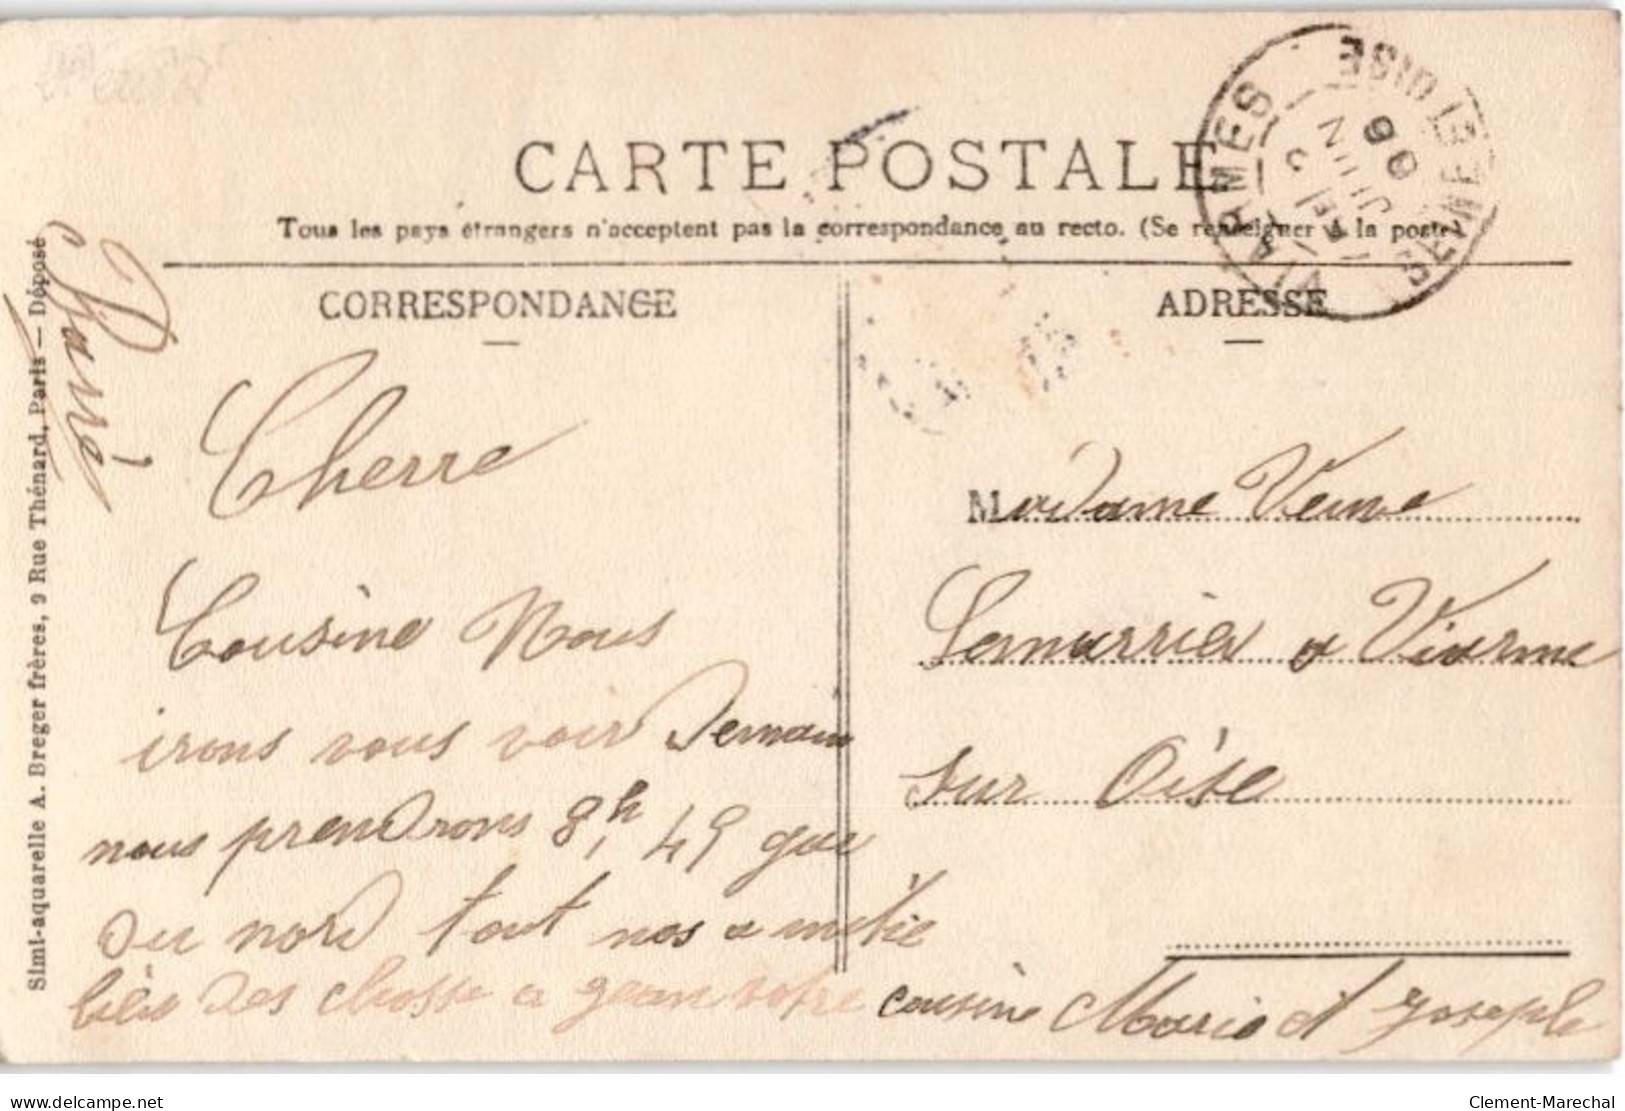 CARTE POSTALE
Tous les pays étrangers n'acceptent pas la correspondance au recto. (Se renseigner à la poste)
CORRESPONDANCE
ADRESSE
Simi-aquarelle A. Breger frères, 9 Rue Thénard, Paris — Déposé
Cherre
Cousine Nous
irons vous voir Demain
nous prendrons 8h, 49 gare
Du nord tout nos amitié
bien Des chosse a jean votre cousine Maria et Joseph
Madame Veuve
Lemarrier a Viarme
sur Oise
SEINE ET OISE
JUIN
06
www.delcampe.net
Clement-Marechal